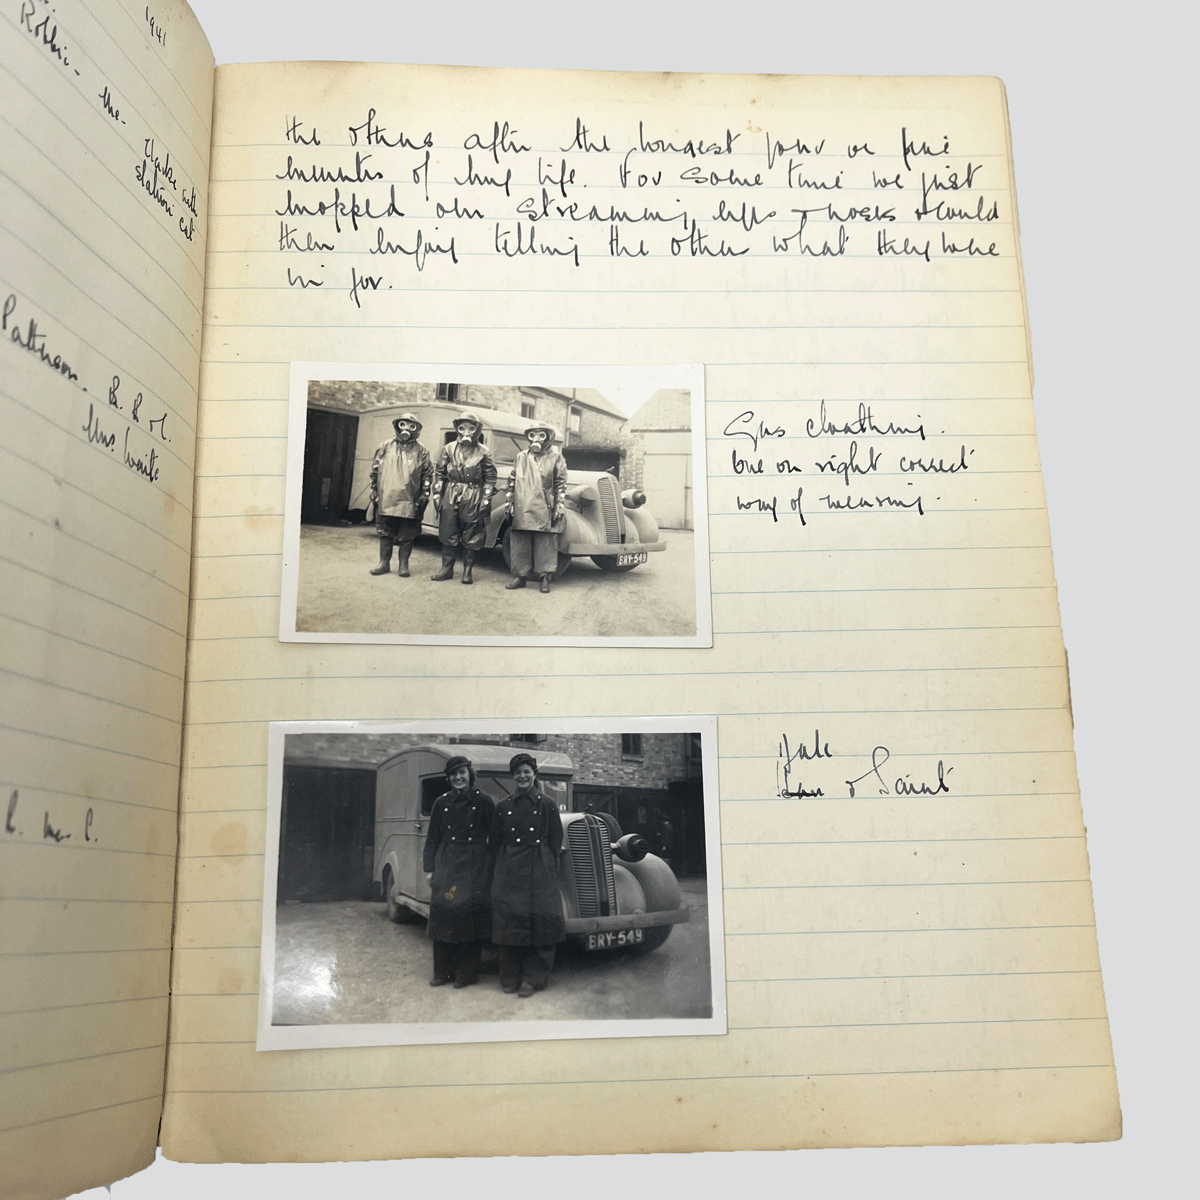 1941
Robbie - the -
Clarke with
station cat
Patterson - B. & M.
Mrs. Waite
the others after the longest four or five
minutes of my life. For some time we just
mopped our streaming eyes & noses & could
then enjoy telling the other what they were
in for.
Gas cloathing.
One on right correct
way of wearing.
BRY-549
Yule
& Saint
BRY-549